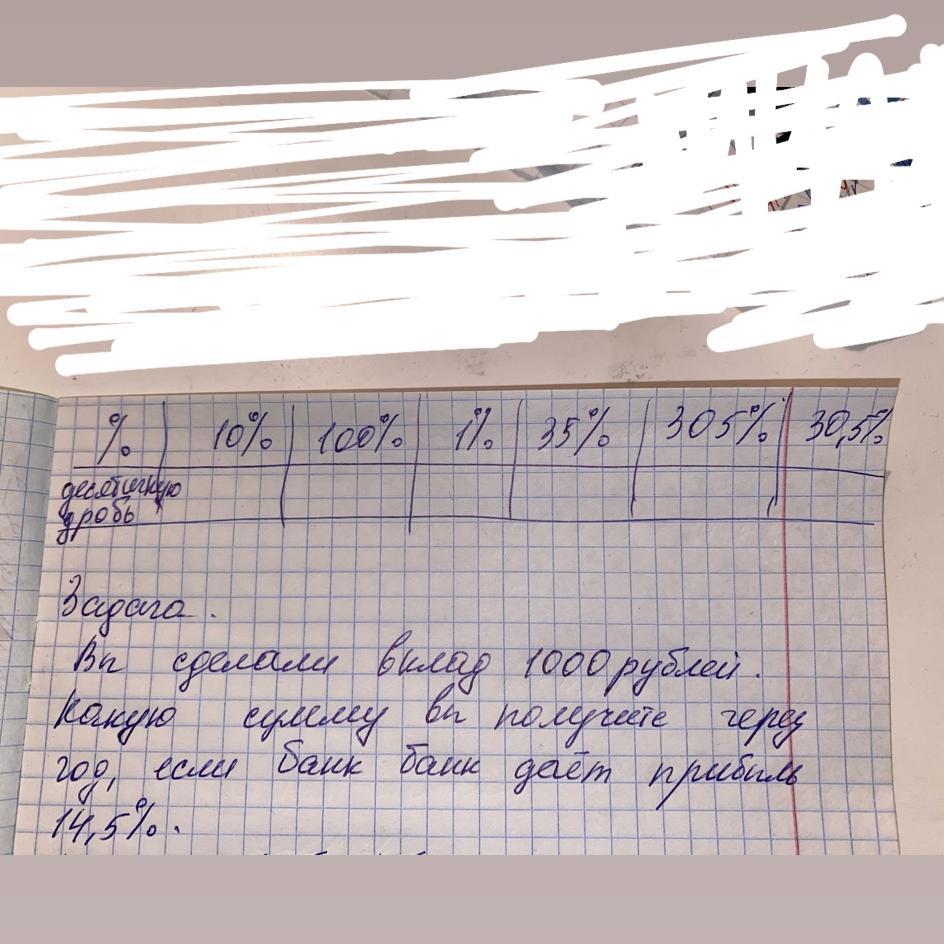 % 10% 100% 1% 35% 305% 30,5%
десятичную
дробь
Задача.
Вы сделали вклад 1000 рублей.
Какую сумму вы получите через
год, если банк банк даёт прибыль
14,5%.